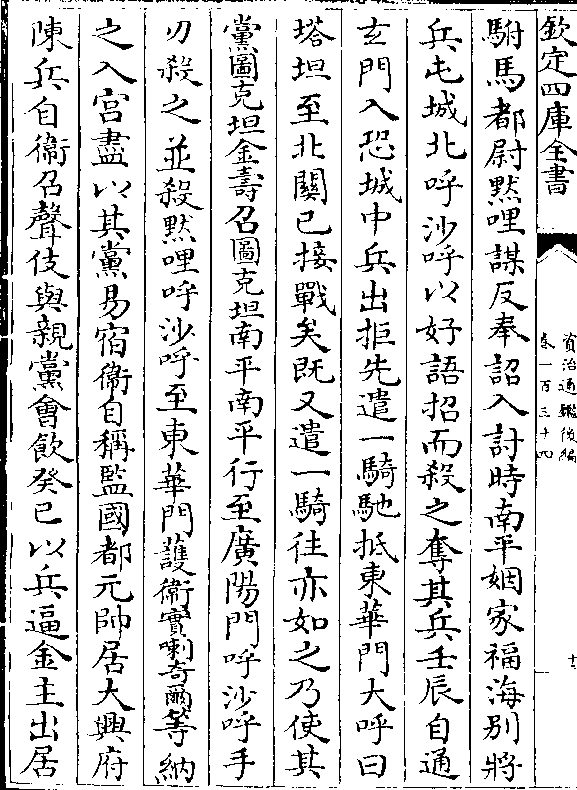 欽定四庫全書
資治通鑑後編
卷一百三十四
駙馬都尉黙哩謀反奉詔入討時南平姻家福海别將
兵屯城北呼沙呼以好語招而殺之奪其兵壬辰自通
玄門入恐城中兵出拒先遣一騎馳抵東華門大呼曰
塔坦至北關已接戰矣既又遣一騎往亦如之乃使其
黨圖克坦金壽召圖克坦南平南平行至廣陽門呼沙呼手
刃殺之並殺黙哩呼沙呼至東華門護衛實喇奇爾等納
之入宫盡以其黨易宿衛自稱監國都元帥居大興府
陳兵自衛召聲伎與親黨會飲癸已以兵逼金主出居